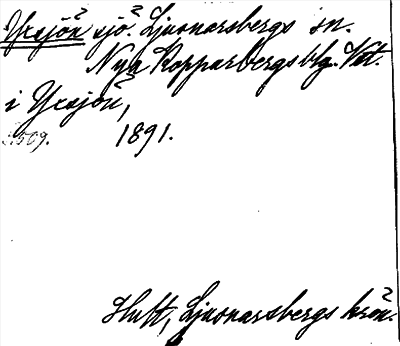 Yxsjön sjö. Ljusnarsbergs sn.
Nya Kopparbergs blg. Vstm.
i Yxsjön,
1891.
Hult, Ljusnarsbergs krön.